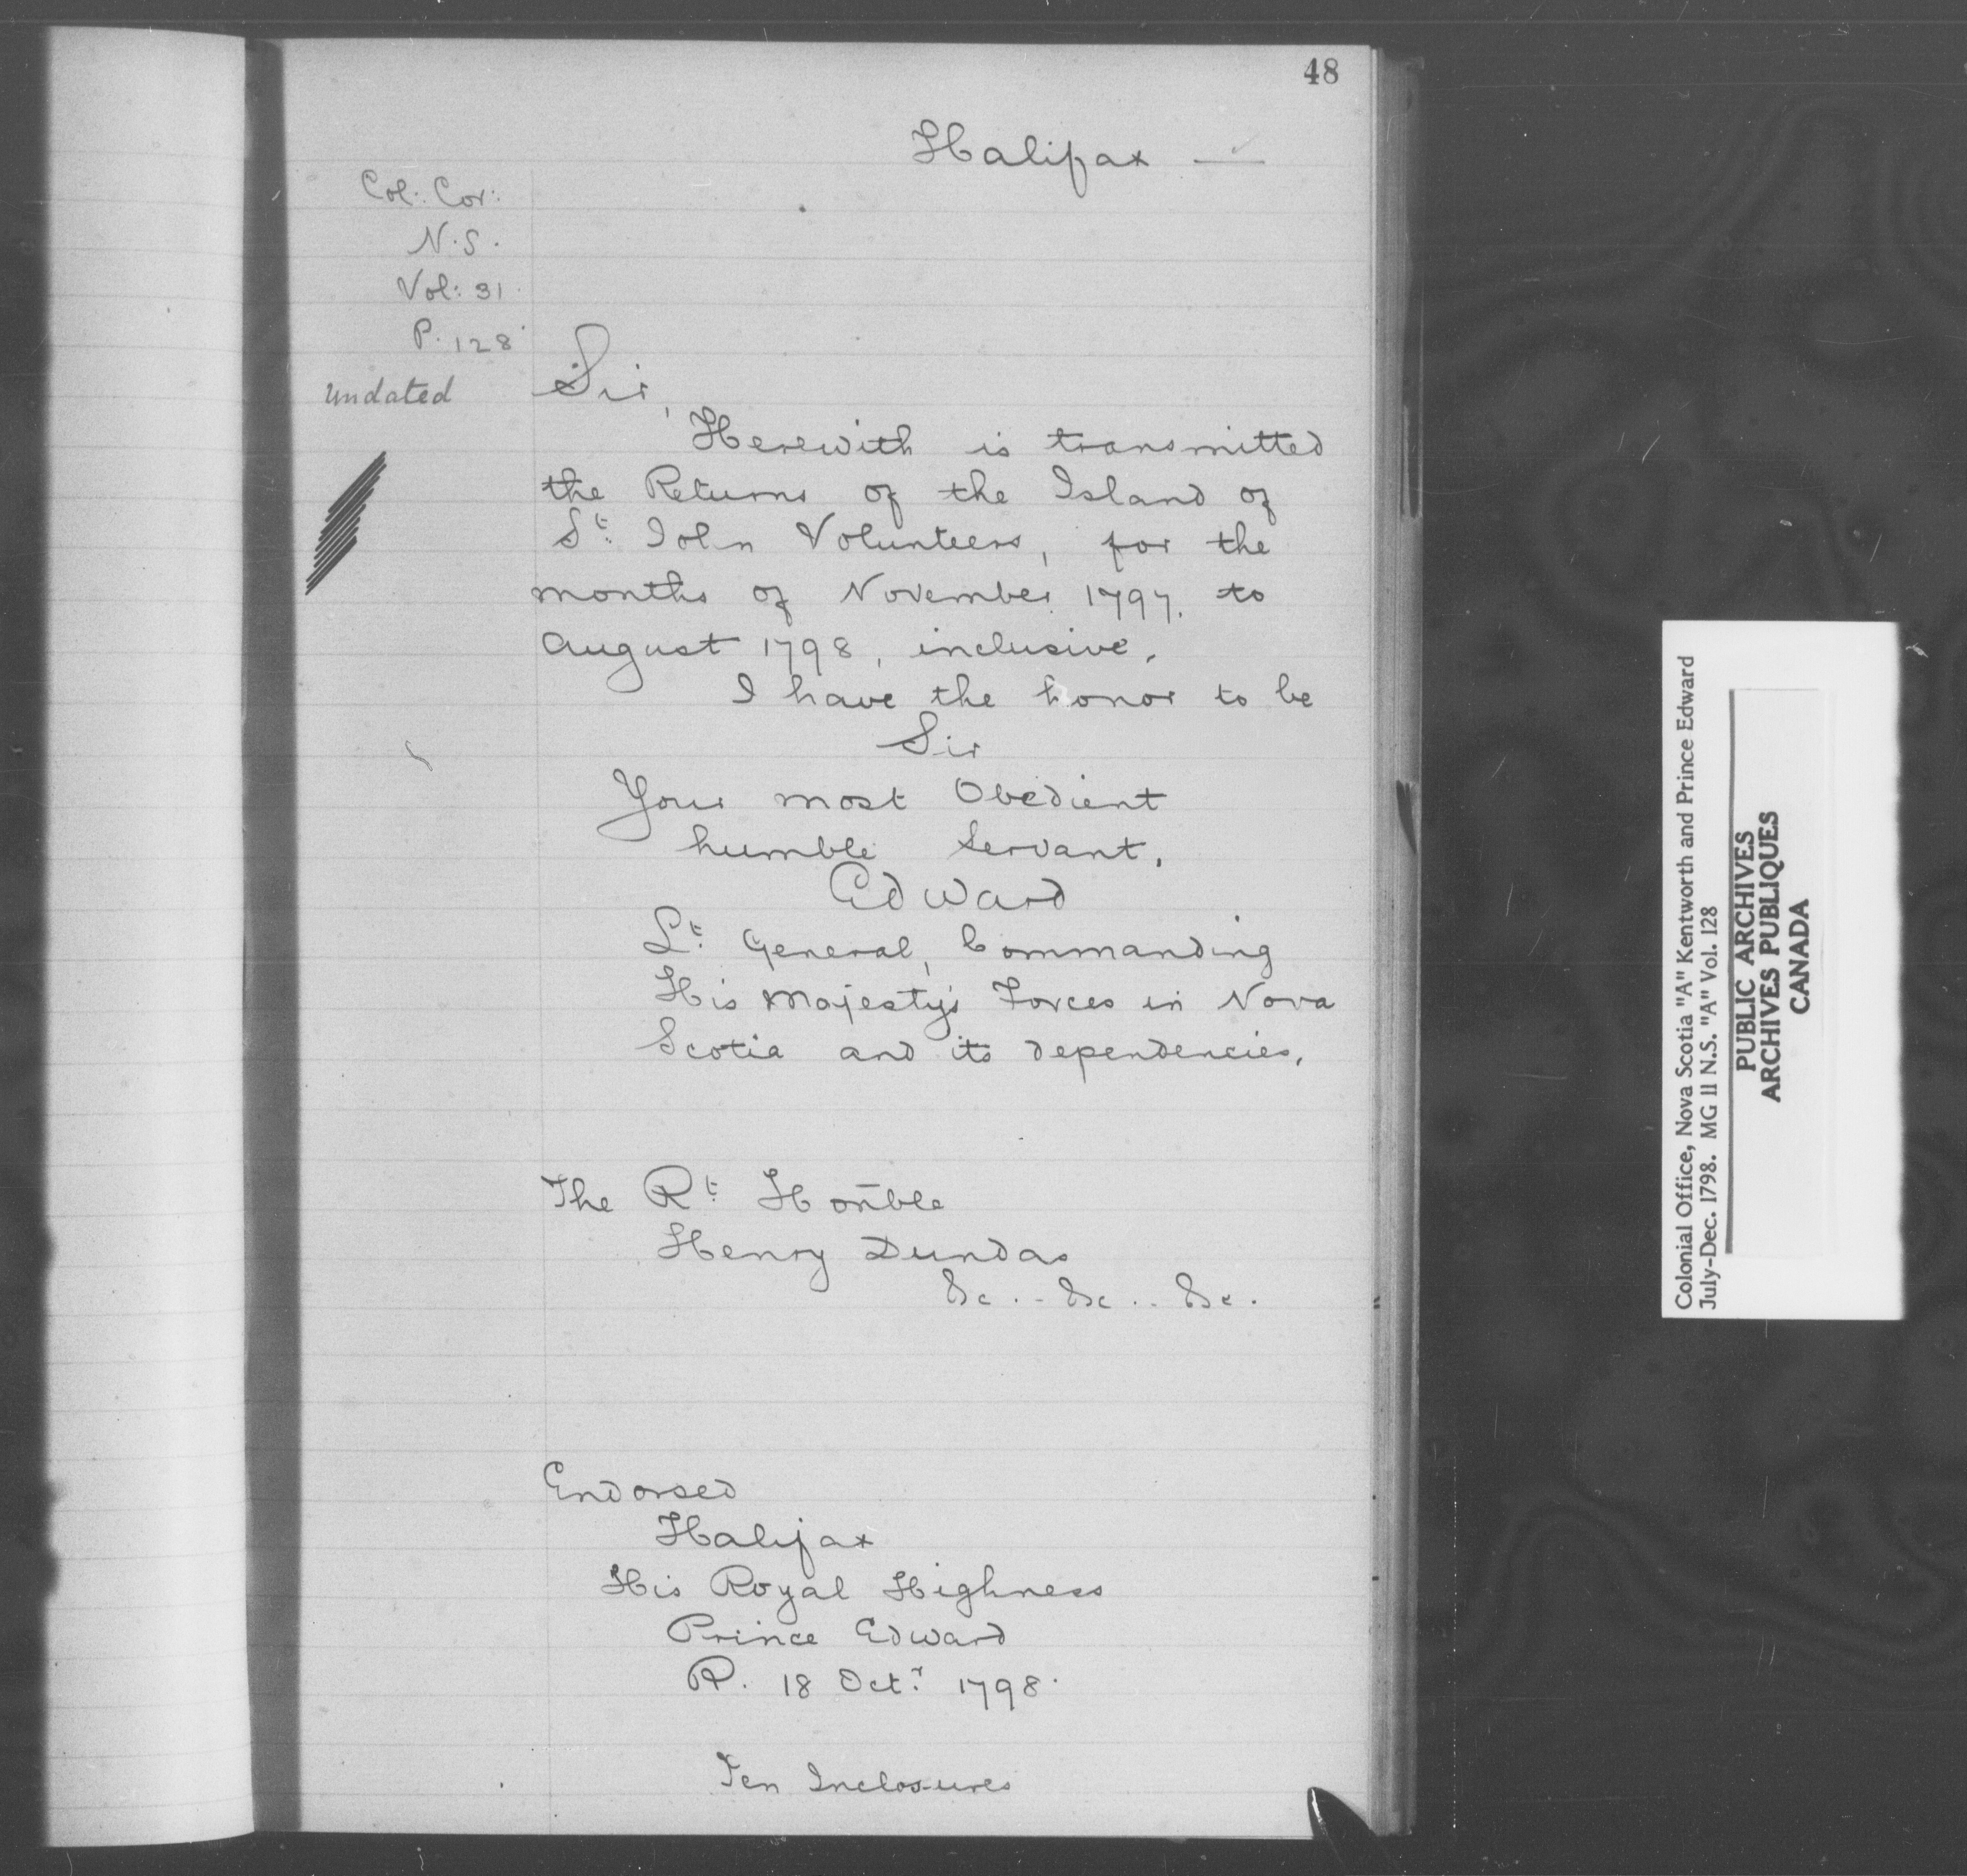 48
Halifax —
Col: Cor:
N.S.
Vol: 31
P. 128
undated
Sir,
Herewith is transmitted
the Returns of the Island of
St: John Volunteers, for the
months of November 1797. to
August 1798, inclusive.
I have the honor to be
Sir
Your most Obedient
humble Servant,
Edward
Lt: General, Commanding
His Majesty's Forces in Nova
Scotia and its dependencies.
The Rt: Honble
Henry Dundas
&c. - &c .. &c.
Endorsed
Halifax
His Royal Highness
Prince Edward
R. 18 Octr: 1798.
Ten Inclosures
Colonial Office, Nova Scotia "A" Kentworth and Prince Edward
July-Dec. 1798. MG 11 N.S. "A" Vol. 128
PUBLIC ARCHIVES
ARCHIVES PUBLIQUES
CANADA